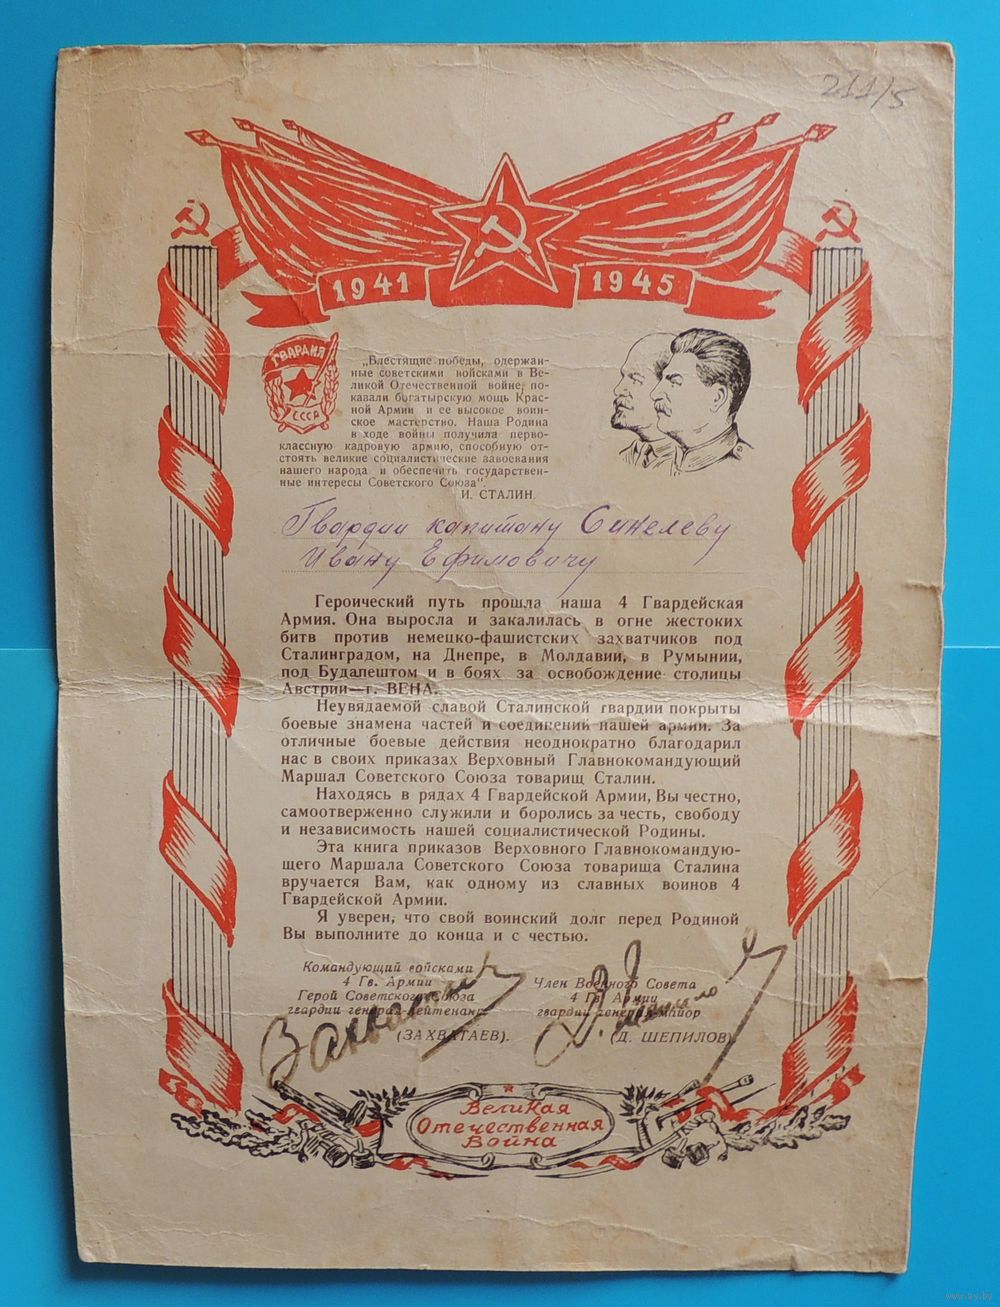 211/5
1941 1945
ГВАРДИЯ
СССР
„Блестящие победы, одержан-
ные советскими войсками в Ве-
ликой Отечественной войне, по-
казали богатырскую мощь Крас-
ной Армии и ее высокое воин-
ское мастерство. Наша Родина
в ходе войны получила перво-
классную кадровую армию, способную от-
стоять великие социалистические завоевания
нашего народа и обеспечить государствен-
ные интересы Советского Союза".
И. СТАЛИН.
Гвардии капитану Синелеву
Ивану Ефимовичу
Героический путь прошла наша 4 Гвардейская
Армия. Она выросла и закалилась в огне жестоких
битв против немецко-фашистских захватчиков под
Сталинградом, на Днепре, в Молдавии, в Румынии,
под Будапештом и в боях за освобождение столицы
Австрии—г. ВЕНА.
Неувядаемой славой Сталинской гвардии покрыты
боевые знамена частей и соединений нашей армии. За
отличные боевые действия неоднократно благодарил
нас в своих приказах Верховный Главнокомандующий
Маршал Советского Союза товарищ Сталин.
Находясь в рядах 4 Гвардейской Армии, Вы честно,
самоотверженно служили и боролись за честь, свободу
и независимость нашей социалистической Родины.
Эта книга приказов Верховного Главнокомандую-
щего Маршала Советского Союза товарища Сталина
вручается Вам, как одному из славных воинов 4
Гвардейской Армии.
Я уверен, что свой воинский долг перед Родиной
Вы выполните до конца и с честью.
Командующий войсками
4 Гв. Армии
Герой Советского Союза
гвардии генерал-лейтенант
(ЗАХВАТАЕВ).
Член Военного Совета
4 Гв. Армии
гвардии генерал-майор
(Д. ШЕПИЛОВ).
Великая
Отечественная
Война
www.ay.by